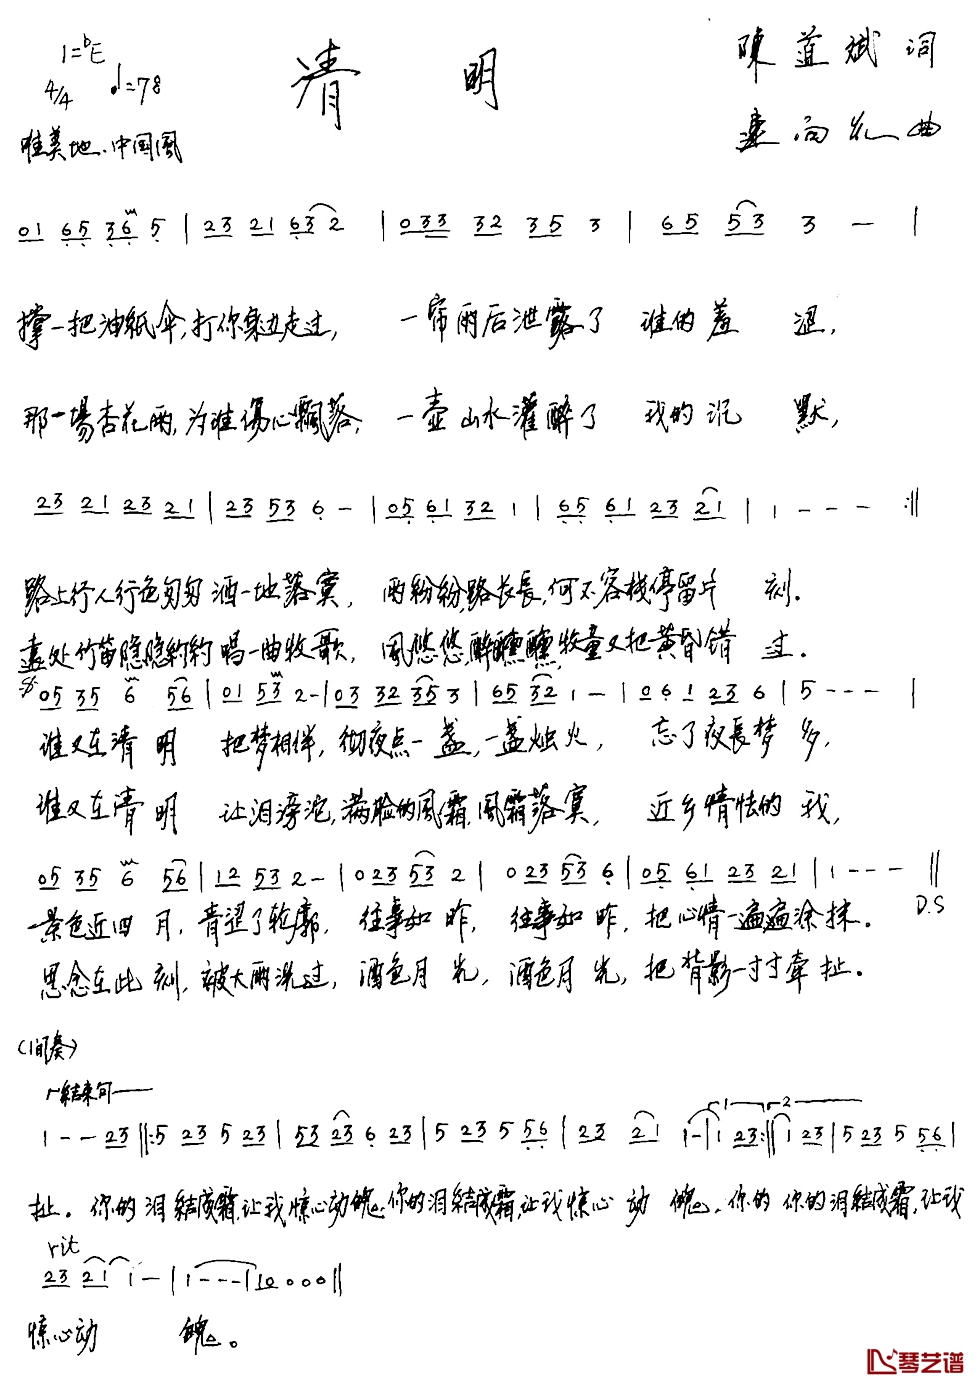 1=bE
4/4 ♩=78
清 明
陳道斌 词
唯美地、中国風
孟向凡 曲
01 65 36 5 | 23 21 63 2 | 033 32 35 3 | 65 53 3 — |
撑一把油紙伞,打你身边走过, 一帘雨后泄露了 谁的羞 涩,
那一場杏花雨,为谁傷心飄落, 一壶山水灌醉了 我的沉 默,
23 21 23 21 | 23 53 6 - | 05 61 32 1 | 65 61 23 21 | 1 - - - :||
路上行人行色匆匆洒一地落寞, 雨紛紛,路长長,何不客栈停留片 刻.
遠处竹笛隐隐约约唱一曲牧歌, 風悠悠,醉醺醺,牧童又把黄昏错 过.
05 35 6 56 | 01 53 2 - | 03 32 35 3 | 65 32 1 - | 061 23 6 | 5 - - - |
谁又在清 明 把梦相伴,彻夜点一 盏,一盏烛火, 忘了夜長梦 多,
谁又在清 明 让泪滂沱,满脸的風霜,風霜落寞, 近乡情怯的 我,
05 35 6 56 | 12 53 2 - | 023 53 2 | 023 53 6 | 05 61 23 21 | 1 - - - ||
D.S
景色近四 月,青涩了轮廓, 往事如 昨, 往事如 昨,把心情一遍遍涂抹.
思念在此 刻,被大雨洗过,酒色月 光,酒色月 光,把背影一寸寸牵扯.
(间奏)
结束句
1 - - 23 ||: 5 23 5 23 | 53 23 6 23 | 5 23 5 56 | 23 21 | 1 - | 1 23 :|| 1 23 | 5 23 5 56 |
1 2
扯。你的泪結成霜,让我惊心动魄,你的泪結成霜,让我惊心 动 魄,你的 你的泪結成霜,让我
rit
23 21 1 - | 1 - - - | 10 0 0 0 ||
惊心动 魄。
琴艺谱